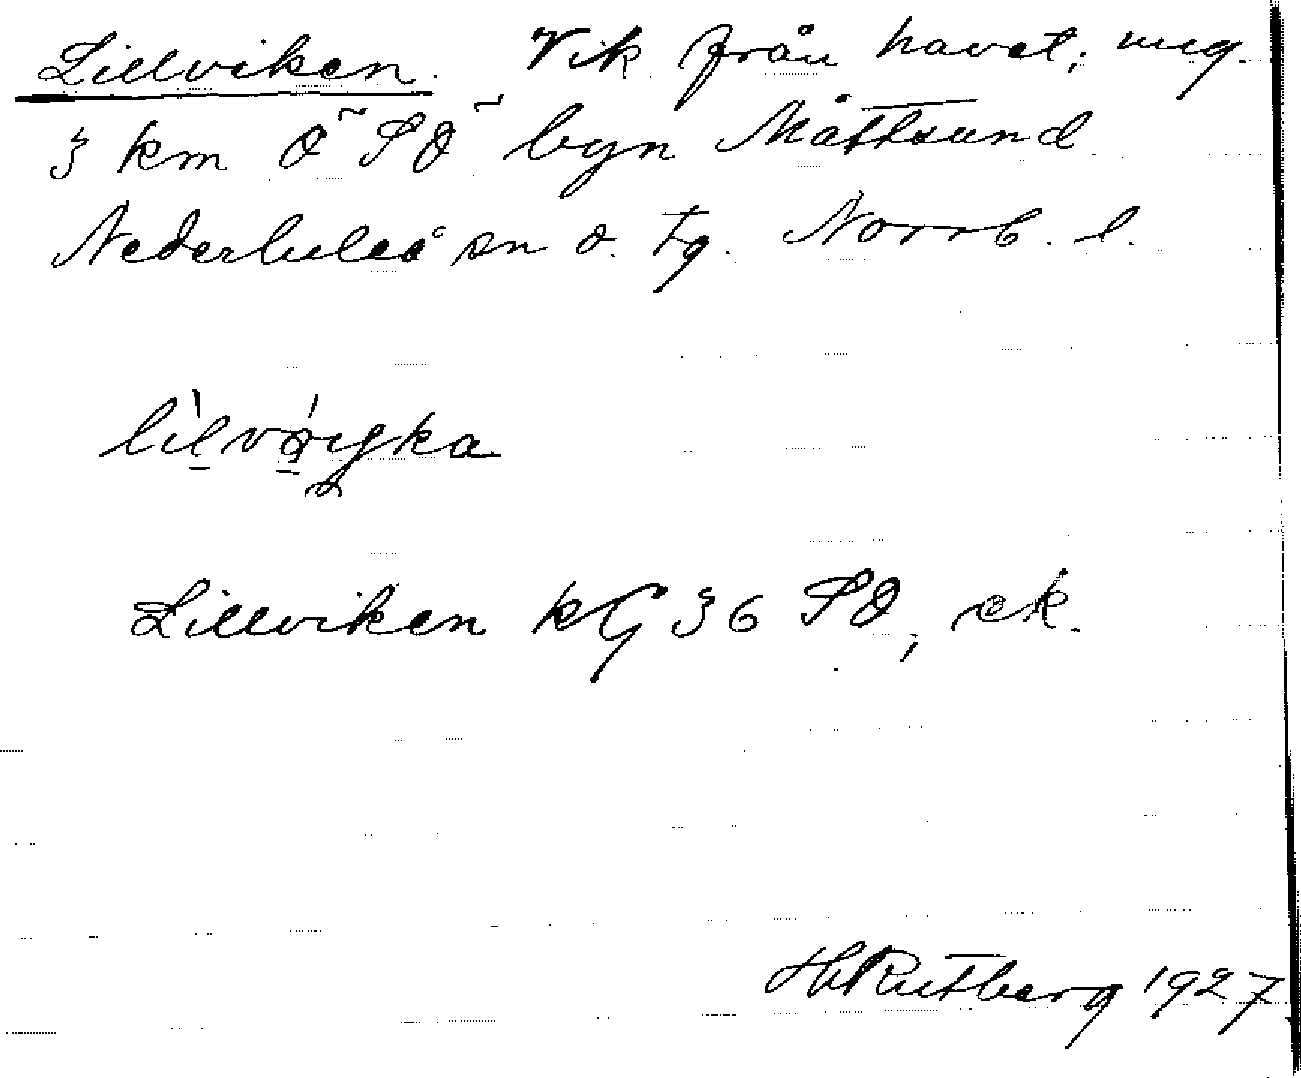 Lillviken. Vik från havet; ung.
3 km Ö SÖ byn Måttsund
Nederluleå sn o. tg. Norrb. l.
Lillviken kG 36 SÖ, ek.
Hj Rutberg 1927